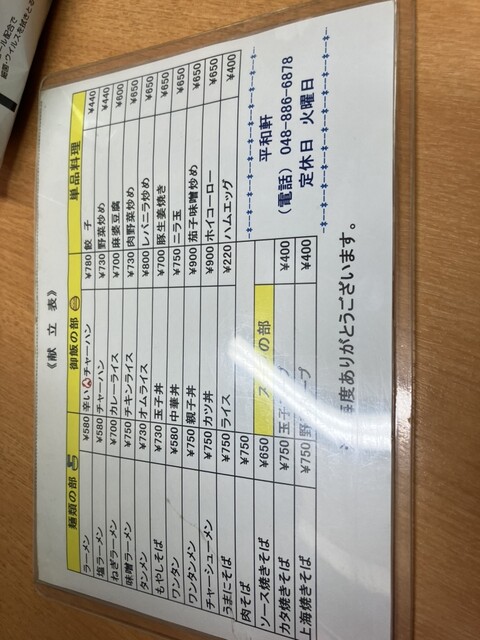 《献 立 表》
麺類の部 御飯の部 単品料理
ラーメン ¥580 辛いチャーハン ¥780 餃 子 ¥440
塩ラーメン ¥580 チャーハン ¥730 野菜炒め ¥440
ねぎラーメン ¥700 カレーライス ¥700 麻婆豆腐 ¥600
味噌ラーメン ¥750 チキンライス ¥730 肉野菜炒め ¥650
タンメン ¥730 オムライス ¥800 レバニラ炒め ¥650
もやしそば ¥730 玉子丼 ¥700 豚生姜焼き ¥650
ワンタン ¥580 中華丼 ¥750 ニラ玉 ¥650
ワンタンメン ¥750 親子丼 ¥900 茄子味噌炒め ¥650
チャーシューメン ¥750 カツ丼 ¥900 ホイコーロー ¥650
うまにそば ¥750 ライス ¥220 ハムエッグ ¥400
肉そば ¥750
ソース焼きそば ¥650 の部
カタ焼きそば ¥750 玉子 ¥400
上海焼きそば ¥750 ¥400
平和軒
（電話） 048-886-6878
定休日 火曜日
度ありがとうございます。